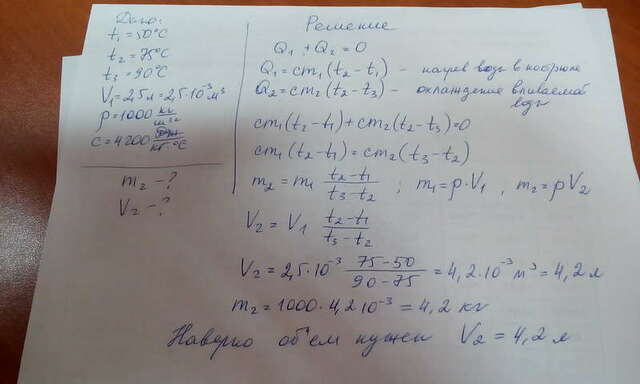 Дано:
t₁ = 50°C
t₂ = 75°C
t₃ = 90°C
V₁ = 2,5 л = 2,5·10⁻³ м³
ρ = 1000 кг/м³
c = 4200 Дж/кг·°C
m₂ - ?
V₂ - ?
Решение
Q₁ + Q₂ = 0
Q₁ = cm₁(t₂ - t₁) - нагрев воды в кастрюле
Q₂ = cm₂(t₂ - t₃) - охлаждение вливаемой
воды
cm₁(t₂ - t₁) + cm₂(t₂ - t₃) = 0
cm₁(t₂ - t₁) = cm₂(t₃ - t₂)
m₂ = m₁ (t₂ - t₁)/(t₃ - t₂) ; m₁ = ρ·V₁ , m₂ = ρV₂
V₂ = V₁ (t₂ - t₁)/(t₃ - t₂)
V₂ = 2,5·10⁻³ (75 - 50)/(90 - 75) = 4,2·10⁻³ м³ = 4,2 л
m₂ = 1000·4,2 10⁻³ = 4,2 кг
Наверно об'ем нужен V₂ = 4,2 л